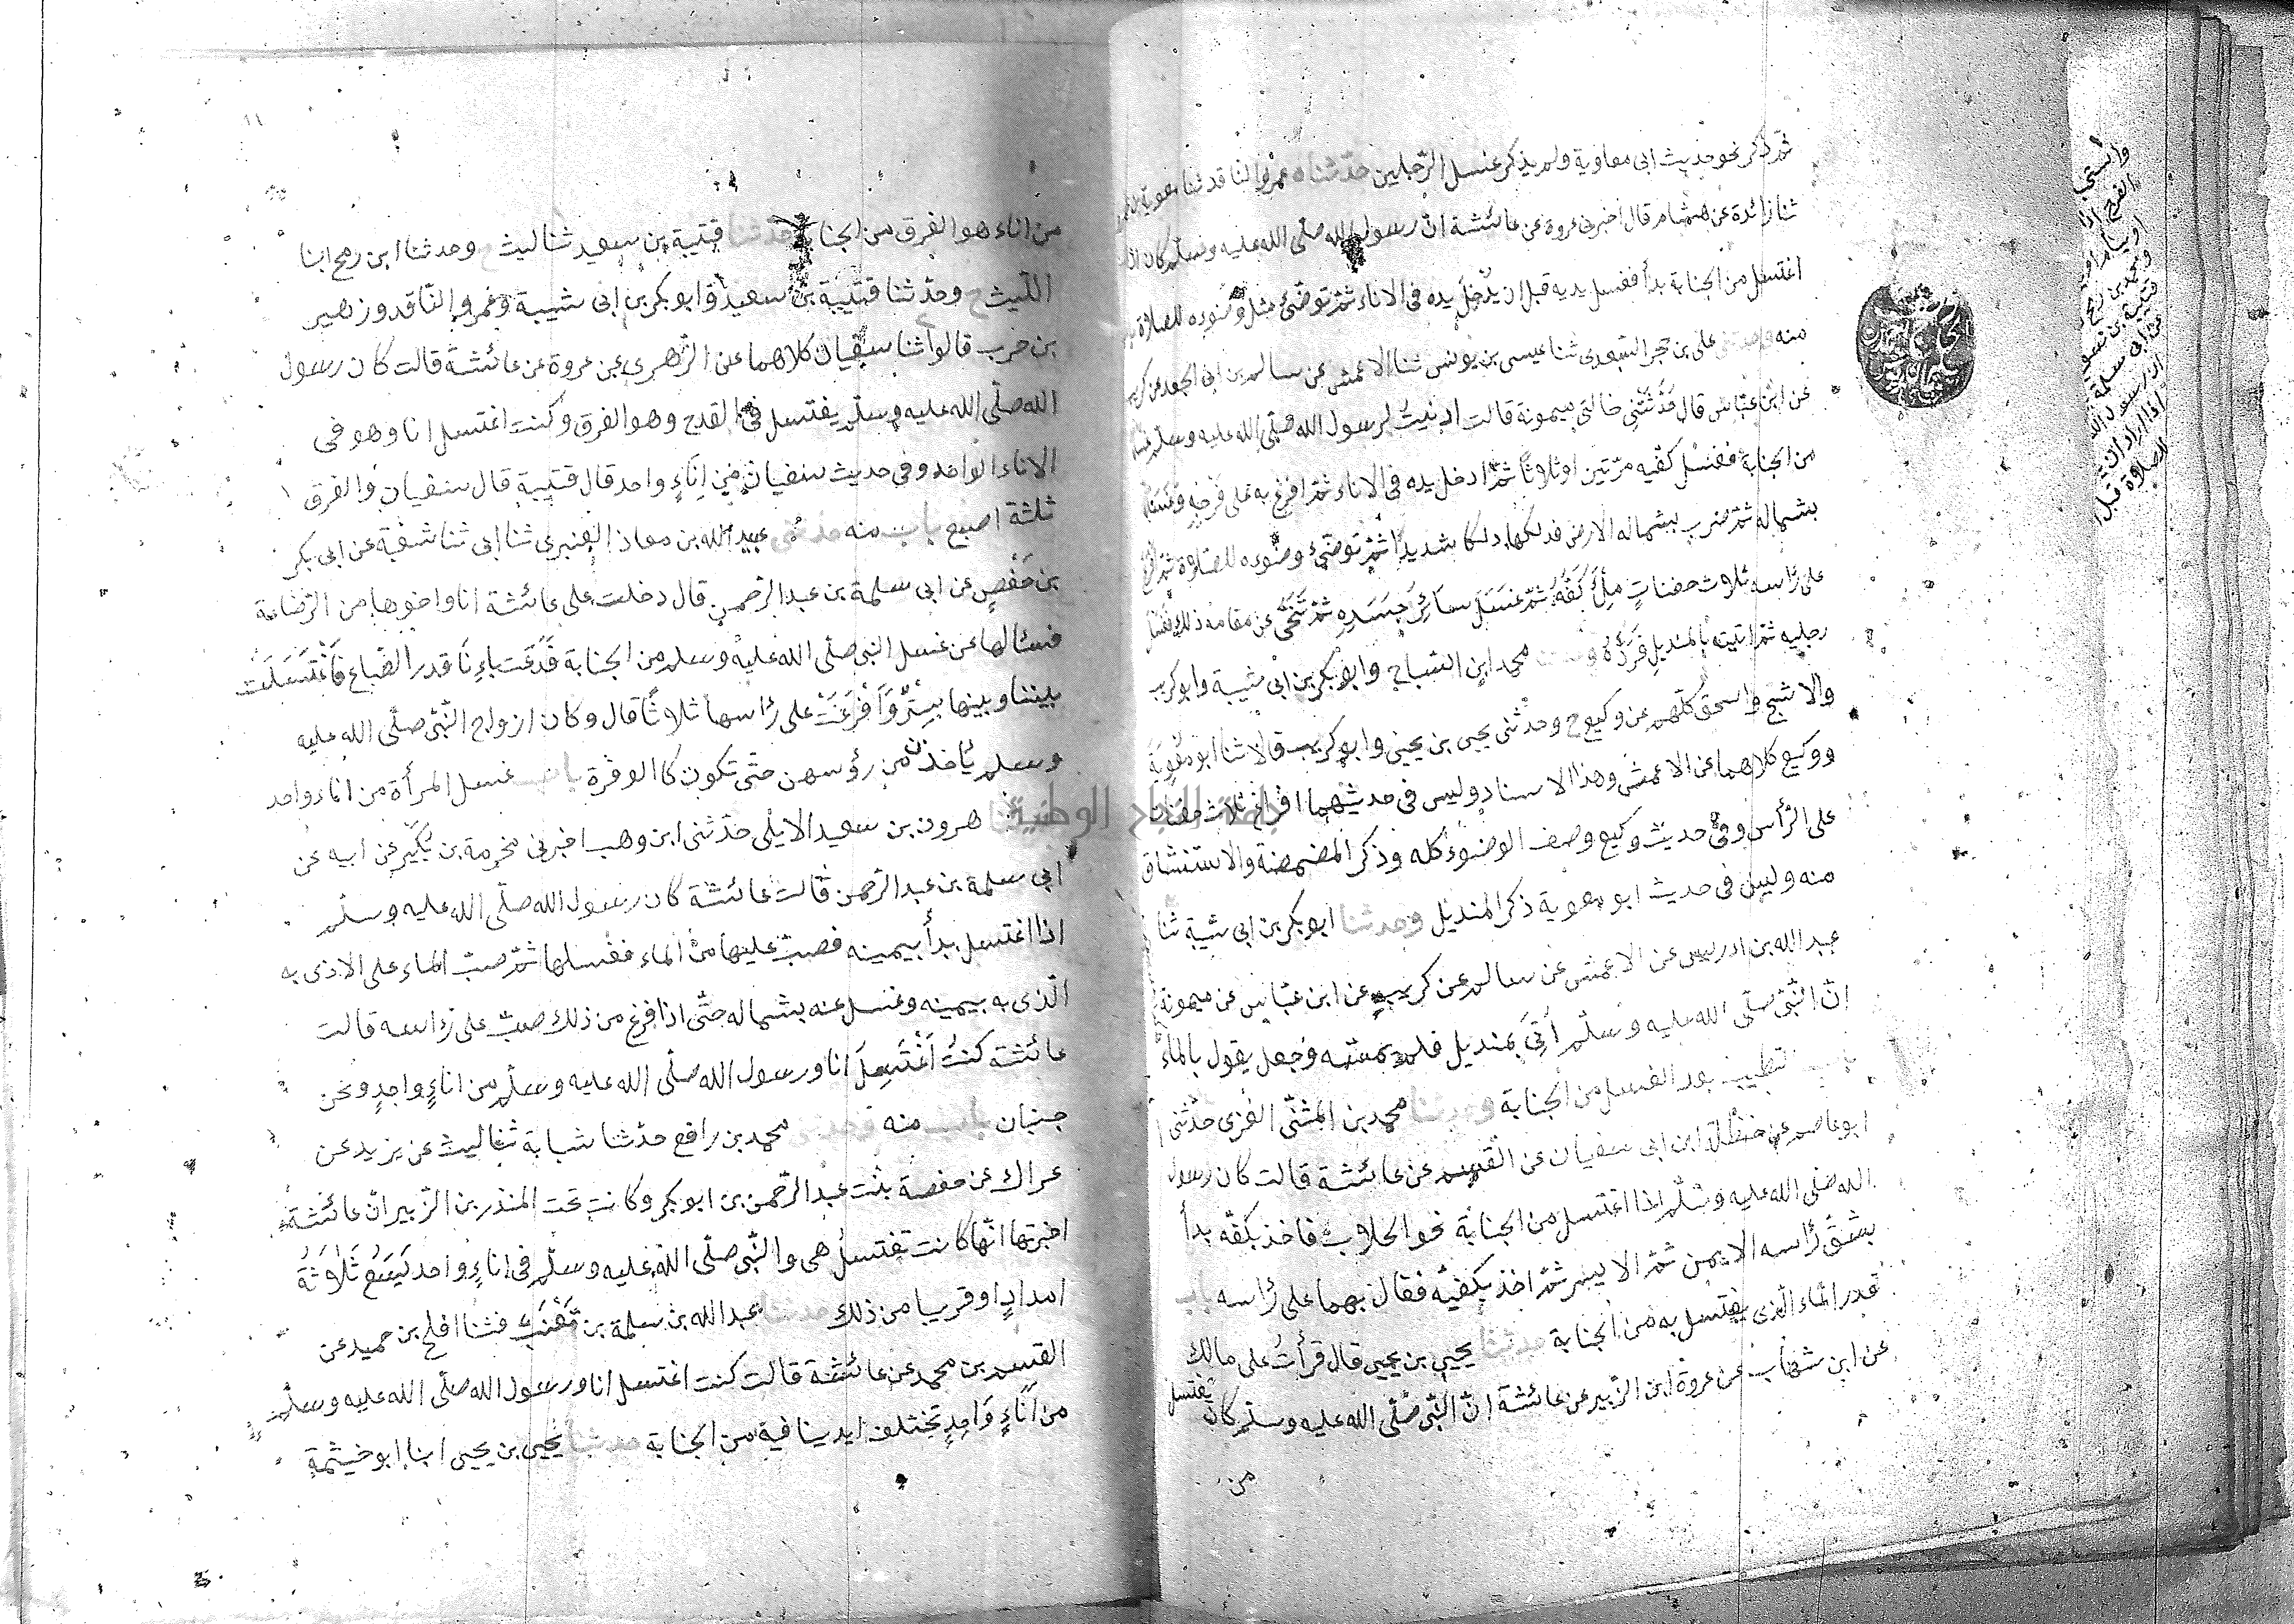 ثم ذكر نحو حديث ابى معاوية ولم يذكر غسل الرّجلين حدّثناه عمرو الناقد ثنا معوية بن عمرو
ثنا زائدة عن هشام قال اخبرنى عروة عن عائشة انّ رسول الله صلّى الله عليه وسلّم كان اذا
اغتسل من الجنابة بدأ فغسل يديه قبل ان يدخل يده فى الاناء ثمّ توضّئ مثل وضوءه للصلاة
منه وحدثنى على بن حجر السّعدى ثنا عيسى بن يونس ثنا الاعمش عن سالم بن ابى الجعد عن كريب
عن ابن عبّاس قال حَدَّثَتْنِى خالتى ميمونة قالت ادنيتُ لرسول الله صلّى الله عليه وسلّم غسله
من الجنابة فغسل كفّيه مرّتين او ثلاثا ثمّ ادخل يده فى الاناء ثمّ افرغ به على فرجه وغسله
بشماله ثمّ ضرب بشماله الارض فدلكها دلكا شديدا ثمّ توضّئ وضوءه للصلاة ثمّ افرغ
على رأسه ثلاث حفناتٍ مِلْءَ كَفِّهُ ثمّ غسَلَ سائِرَ جسَدِهِ ثمّ تَنَحَّى عن مقامه ذلك فغسل
رجليه ثمّ اتيته بالمنديل فَرَدَّهُ وحدثنا محمد ابن الصّباح وابو بكر بن ابى شيبة وابو كريب
والاشج واسحق كلّهم عن وكيع ح وحدّثنى يحيى بن يحيى وابو كريب قالا ثنا ابو معٰوية
ووكيع كلاهما عن الاعمش وهذا الاسناد وليس فى حديثهما افراغ ثلاث حفنات
على الرّأس وفى حديث وكيع وصف الوضوء كله وذكر المضمضة والاستنشاق
منه وليس فى حديث ابو معوية ذكر المنديل وحدثنا ابو بكر بن ابى شيبة ثنا
عبد الله بن ادريس عن الاعمش عن سالم عن كريب عن ابن عبّاس عن ميمونة
انّ النّبىّ صلّى الله عليه وسلّم أُتِىَ بمنديل فلم يمسّه وجعل يقول بالماء
باب تطييب بعد الغسل من الجنابة وحدثنا محمد بن المثنّى العنزى حدّثنى
ابو عاصم عن حنظلة ابن ابى سفيان عن القسم عن عائشة قالت كان رسول
الله صلى الله عليه وسلّم اذا اغتسل من الجنابة نحو الحلاب فاخذ بكفّه بدأ
بشقّ رأسه الايمن ثمّ الايسر ثمّ اخذ بكفّيه فقال بهما على رأسه باب
قدر الماء الّذى يغتسل به من الجنابة حدثنا يحيى بن يحيى قال قرأتُ على مالك
عن ابن شهاب عن عروة ابن الزّبير عن عائشة انّ النّبىّ صلّى الله عليه وسلّم كان يغتسل
من
والستى
الفرج اذا
ومحمد بن رمح
قتيبة بن سعيد
عن ابى سلمة
ان رسول الله
اذا اراد ان
للصلاة قبل
من اناء هو الفرق من الجنابة حدثنا قتيبة بن سعيد ثنا ليث ح وحدثنا ابن رمح ابنا
اللّيث ح وحدّثنا قتيبة بن سعيد وابو بكر بن ابى شيبة وعمرو النّاقد وزهير
بن حرب قالوا ثنا سفيان كلاهما عن الزّهرى عن عروة عن عائشة قالت كان رسول
الله صلّى الله عليه وسلّم يغتسل فى القدح وهو الفرق وكنت اغتسل انا وهو فى
الاناء الواحد وفى حديث سفيان من اِنَاءٍ واحد قال قتيبة قال سفيان والفرق
ثلثة اصبع باب منه حدثنى عبيد الله بن معاذ العنبرى ثنا ابى ثنا شعبة عن ابى بكر
بن حَفْصٍ عن ابى سلمة بن عبد الرّحمن قال دخلت على عائشة انا واخوها من الرّضاعة
فسئالها عن غسل النبى صلّى الله عليه وسلم من الجنابة فَدَعَت باِءِنَا قدر الصّاع فَاغْتَسَلَتْ
بيننا وبينها سِتْرٌ وَأَفْرَغَتْ على رأسها ثلاثًا قال وكان ازواج النّبىّ صلّى الله عليه
وسلم يأخذن من رؤسهن حتّى تكون كالوفرة باب غسل المرأة من اناء واحد
هرون بن سعيد الايلى حدّثنى ابن وهب اخبرنى مخرمة بن بُكَيْر عن ابيه عن
ابى سلمة بن عبد الرّحمن قالت عائشة كان رسول الله صلّى الله عليه وسلّم
اذا اغتسل بدأ بيمينه فصبّ عليها من الماء فغسلها ثمّ صبّ الماء على الاذى به
الّذى به بيمينه وغسل عنه بشماله حتّى اذا فرغ من ذلك صبّ على رأسه قالت
عائشة كنتُ اَغْتَسِلُ انا ورسول الله صلّى الله عليه وسلّم من اناءٍ واحدٍ ونحن
جنبان باب منه وحدثنى محمد بن رافع حدّثنا شبابة ثنا ليث عن يزيد عن
عراك عن حفصة بنت عبد الرّحمن بن ابو بكر وكانت تحت المنذر بن الزّبير انّ عائشة
اخبرتها انّها كانت تغتسل هى والنّبى صلّى الله عليه وسلّم فى اناءٍ واحد يَسَعُ ثَلٰثَةُ
امدادٍ او قريبا من ذلك حدثنا عبد الله بن سلمة بن قَعْنَبْ فثنا افلح بن حميد عن
القسم بن محمد عن عائشة قالت كنت اغتسل انا ورسول الله صلّى الله عليه وسلّم
من اناءٍ وَاحِدٍ تختلف ايدينا فيه من الجنابة حدثنا يحيى بن يحيى ابنا ابو خيثمة
جامعة النجاح الوطنية